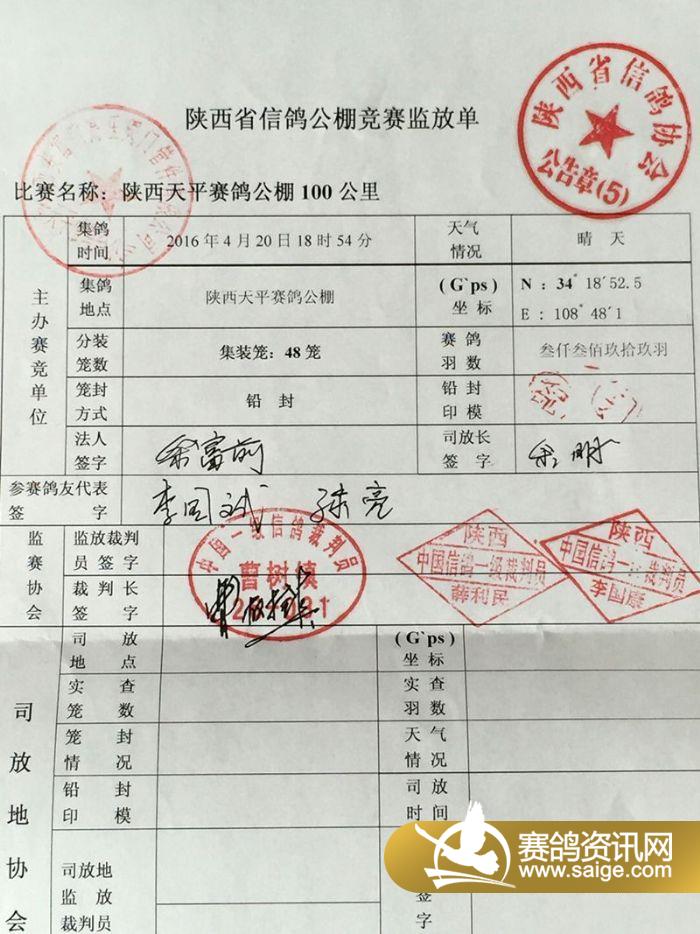 陕西省信鸽协会
公告章(5)
陕西省信鸽公棚竞赛监放单
比赛名称：陕西天平赛鸽公棚100公里
集鸽时间 2016年4月20日18时54分 天气情况 晴 天
主办赛竞单位
集鸽地点 陕西天平赛鸽公棚 (G`ps)坐标 N：34°18´52.5
E：108°48´1
分装笼数 集装笼：48笼 赛鸽羽数 叁仟叁佰玖拾玖羽
笼封方式 铅 封 铅封印模
法人签字 司放长签字
参赛鸽友代表签字 李国斌 陈亮
监赛协会
监放裁判员签字
裁判长签字
中国一级信鸽裁判员
曹树镇
陕西
中国信鸽一级裁判员
薛利民
陕西
中国信鸽一级裁判员
李国康
司放地协会
司放地点 (G`ps)坐标
实查笼数 实查羽数
笼封情况 天气情况
铅封印模 司放时间
司放地监放裁判员 签字
赛鸽资讯网
www.saige.com